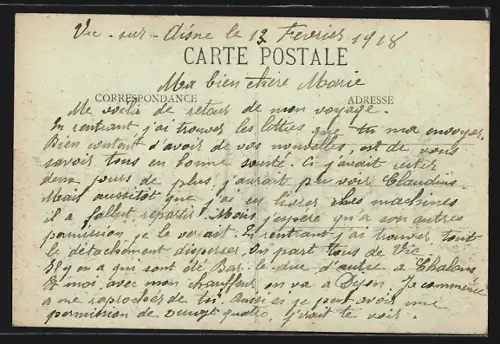 Vic-sur-Aisne le 13 Fevrier 1918
CARTE POSTALE
Ma bien chere Marie
CORRESPONDANCE ADRESSE
Me voila de retour de mon voyage.
En rentrant j'ai trouver les lettres que tu ma envoyer.
Bien content d'avoir de vos nouvelles, et de vous
savoir tous en bonne santé. Ci j'avait rester
deux jours de plus j'aurait pu voir Claudius.
Mais aussitôt que j'ai eu livrer mes machines
il a fallut repartir. Mais j'espère qu'a son autres
permission je le verait. En rentrant j'ai trouver tout
le détachement disperser. On part tous de Vic.
Il y en a qui sont été Bar-le-duc d'autre a Chalons
Et moi, avec mon chauffeur on va a Dijon. Je commence
a me raprocher de toi. Aussi si je peut avoir une
permission de vaingt quatre, j'irait te voir.